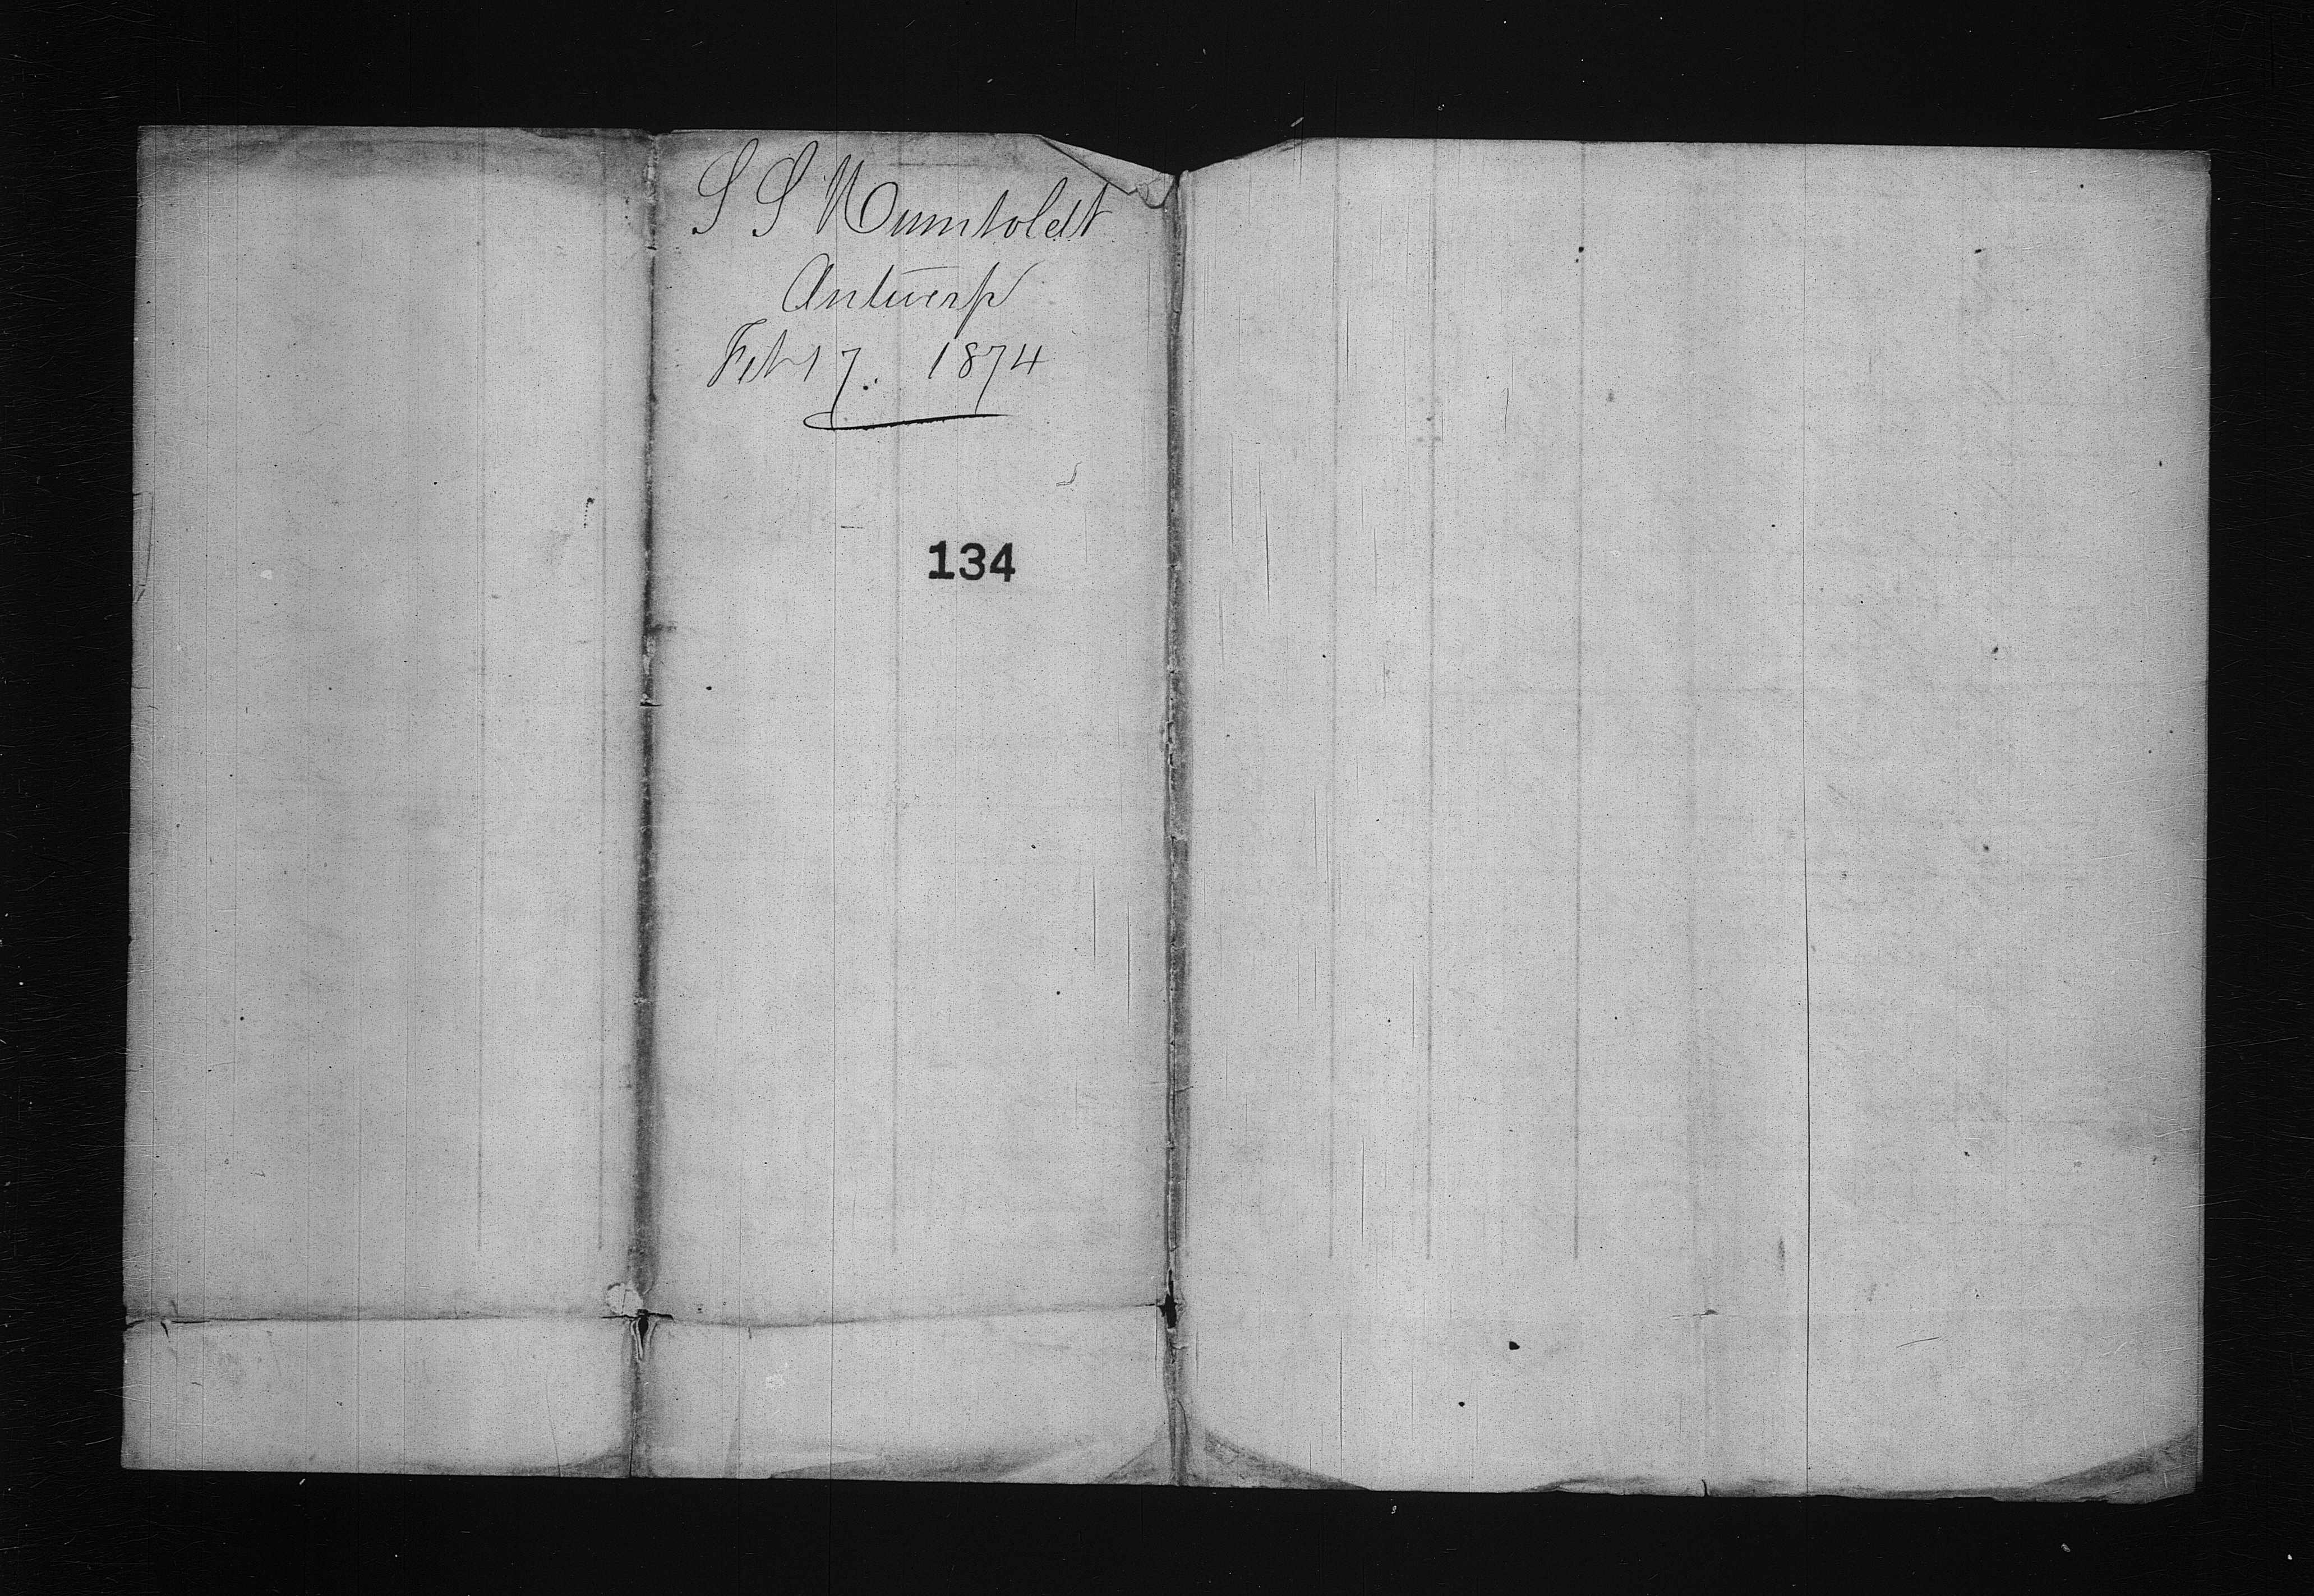 S S Humboldt
Antwerp
Feb 17. 1874
134